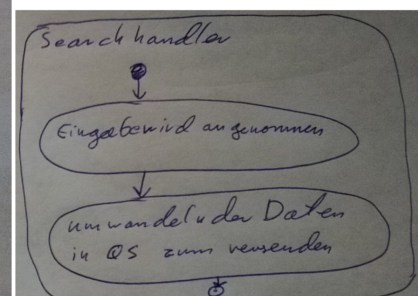 Searchhandler
Eingabe wird angenommen
umwandeln der Daten
in QS zum versenden